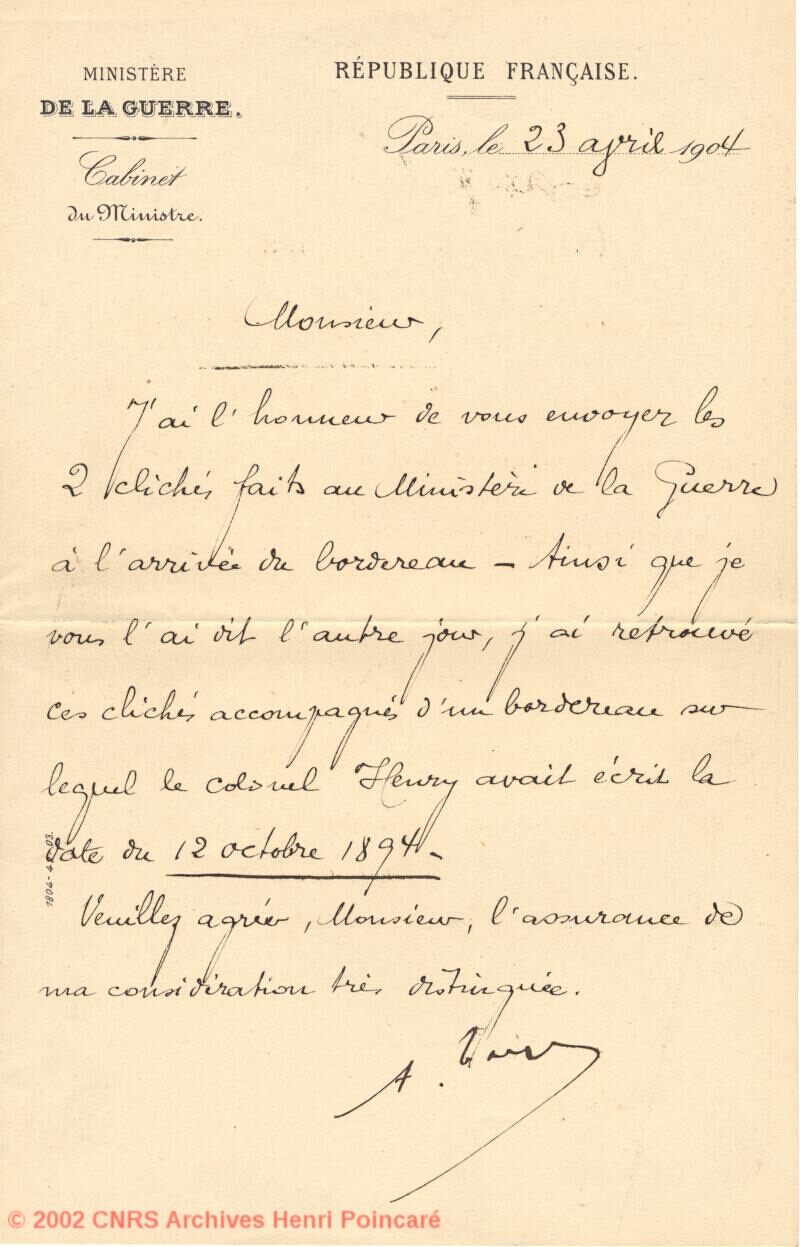 MINISTÈRE
DE LA GUERRE.
Cabinet
du Ministre.
RÉPUBLIQUE FRANÇAISE.
Paris, le 23 avril 1904
Monsieur,
J'ai l'honneur de vous envoyer les
2 clichés faits au Ministère de la Guerre
à l'arrivée du bordereau – Ainsi que je
vous l'ai dit l'autre jour, j'ai retrouvé
ces clichés accompagnés d'un bordereau sur
lequel le colonel Henry avait écrit la
date du 12 octobre 1894 –
Veuillez agréer, Monsieur, l'assurance de
ma considération très distinguée.
A.
© 2002 CNRS Archives Henri Poincaré